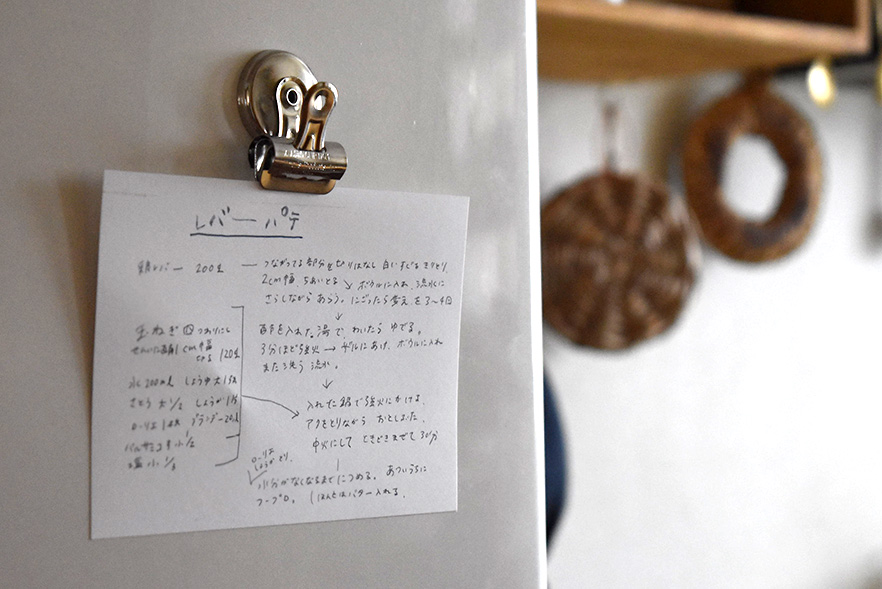 レバーパテ
鶏レバー 200g
つながってる部分を切りはなし 白いすじをきりとり
2cm幅 ちあいとる ↘ ボウルに入れ、流水に
さらしながらあらう。にごったら変えを3〜4回
↓
酢を入れた湯で、わいたらゆでる。
3分ほど強火 → ザルにあげ、ボウルに入れ
また洗う 流水。
↓
玉ねぎ
せんいに直角1cm幅
切る 120g
水200ml しょうゆ大1
さとう 大1/2 しょうが1片
ローリエ1まい ブランデー20ml
バルサミコ す小1/2
塩 小1/3
入れた鍋で強火にかけ、
アクをとりながら おとしぶた。
中火にして ときどきまぜて 30分
ローリエ
しょうがとり、
水分がなくなるまでにつめる。あついうちに
フープロ。(ほんとはバター入れる。